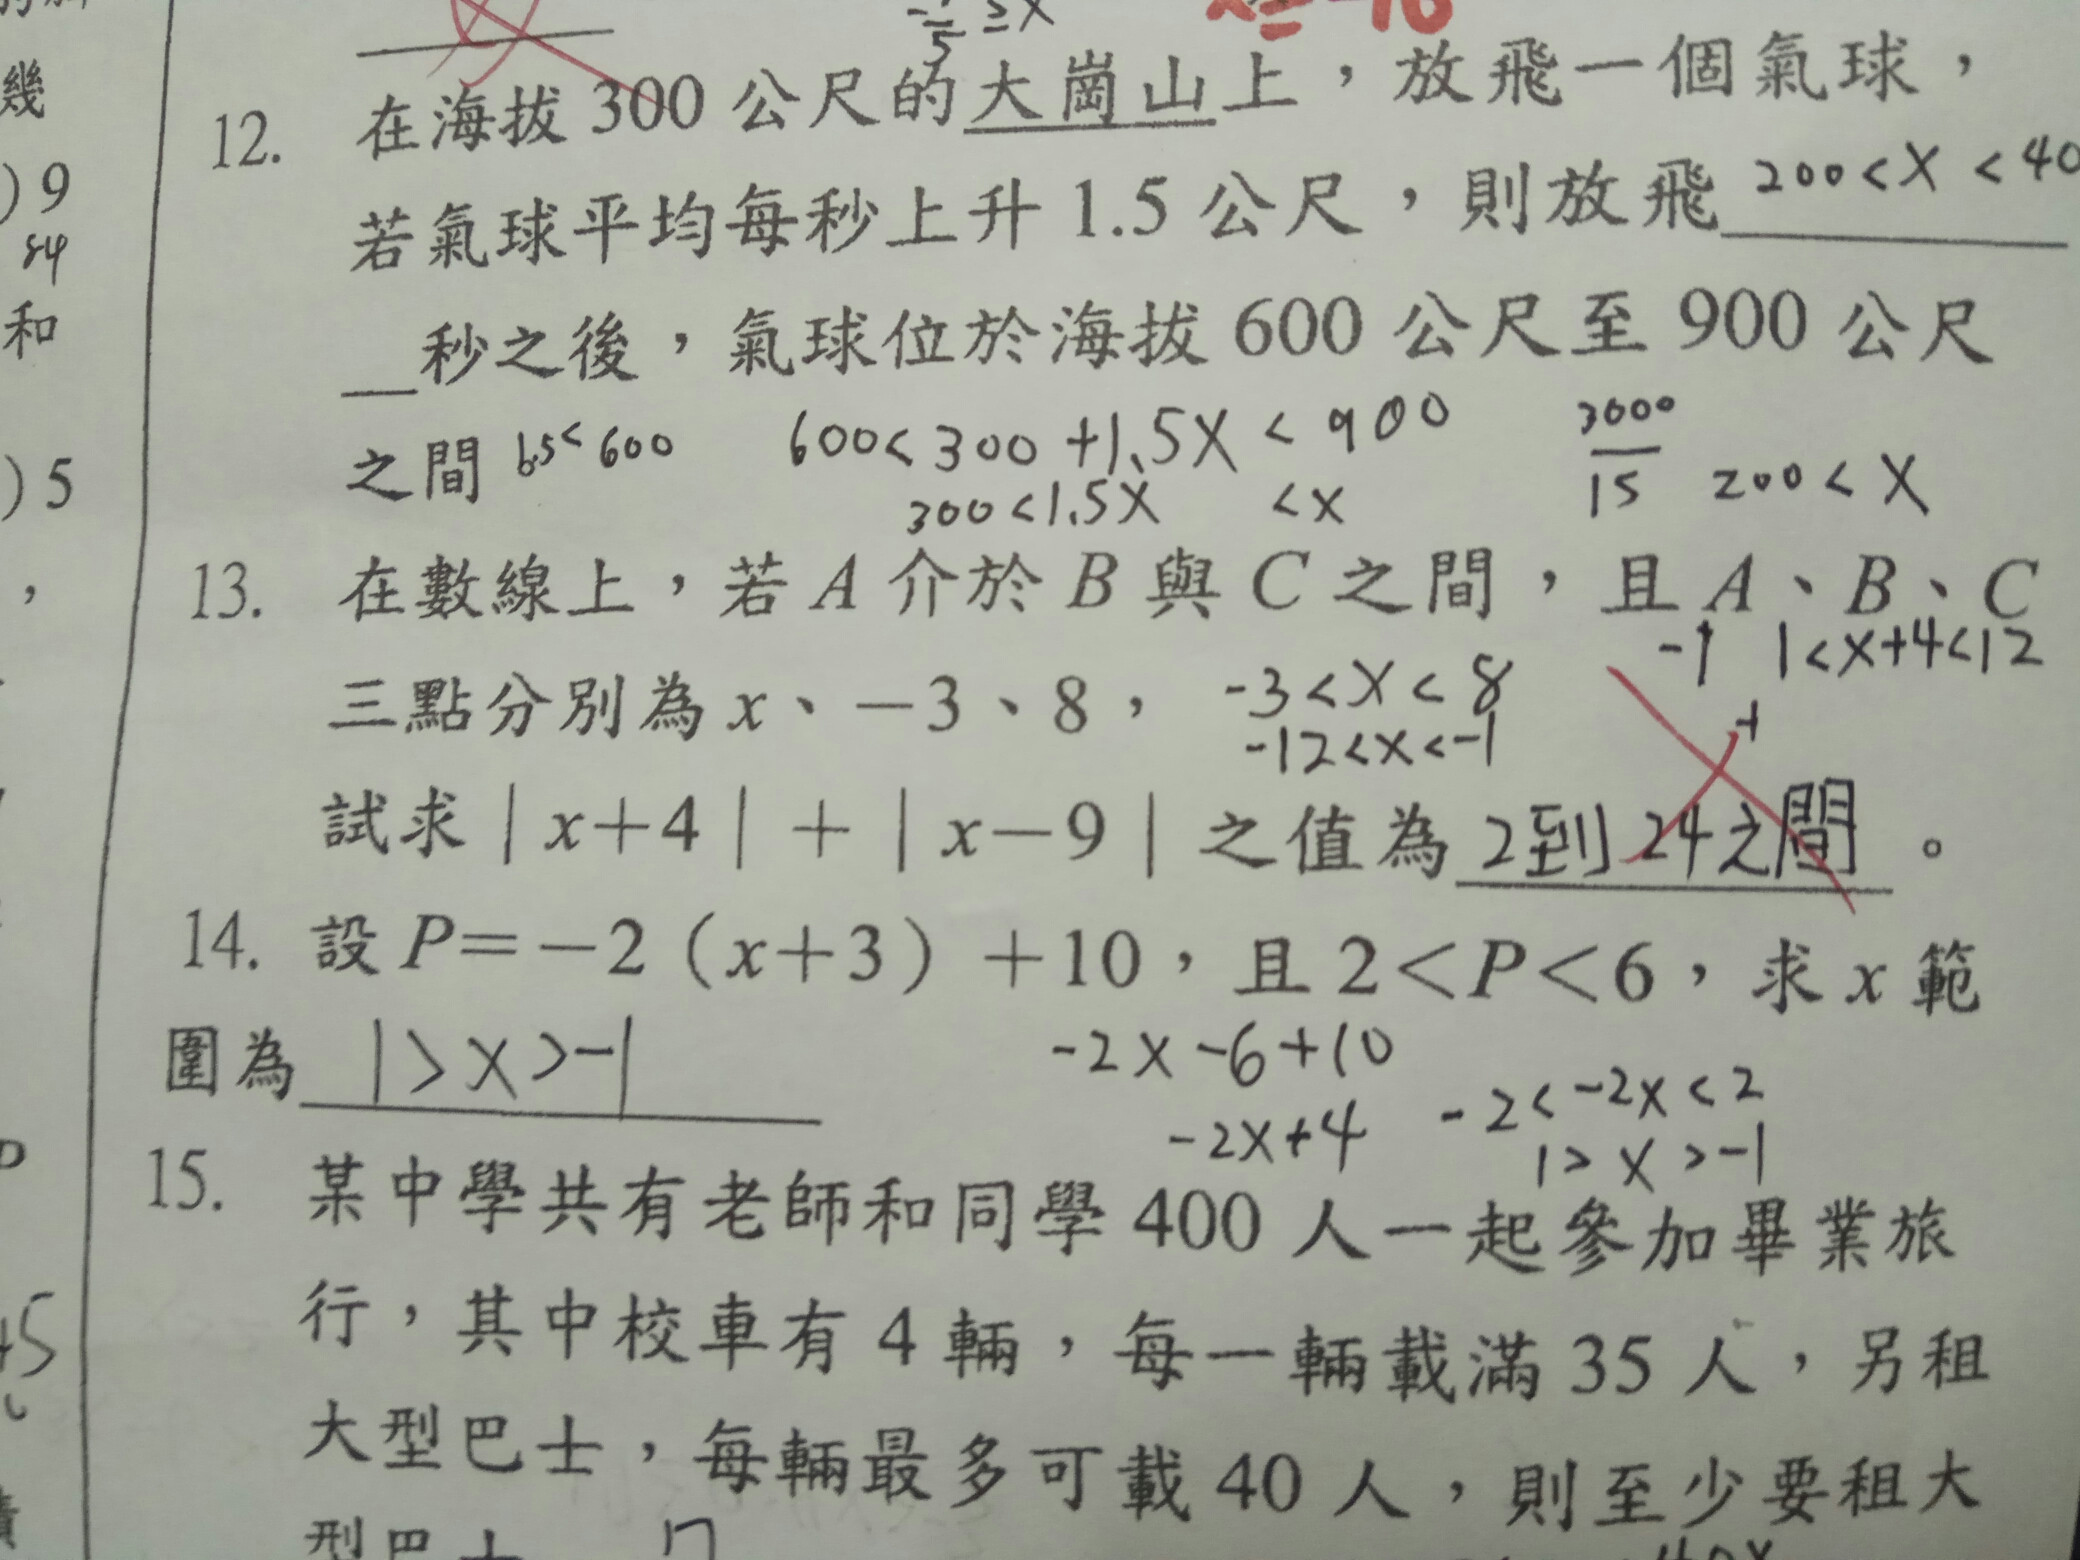 幾
) 9
84
和
) 5
≥x
12. 在海拔 300 公尺的大崗山上，放飛一個氣球，
若氣球平均每秒上升 1.5 公尺，則放飛 200<x<40
秒之後，氣球位於海拔 600 公尺至 900 公尺
之間 6.5<600 600<300+1.5x<900 3000
300<1.5x <x 15 200<x
13. 在數線上，若 A 介於 B 與 C 之間，且 A、B、C
1<x+4<12
三點分別為 x、－3、8， -3<x<8
-12<x<-1
試求｜x＋4｜＋｜x－9｜之值為 2到24之間 。
14. 設 P＝－2（x＋3）＋10，且 2＜P＜6，求 x 範
圍為 1>x>-1 -2x-6+10
-2x+4 -2<-2x<2
1>x>-1
15. 某中學共有老師和同學 400 人一起參加畢業旅
行，其中校車有 4 輛，每一輛載滿 35 人，另租
大型巴士，每輛最多可載 40 人，則至少要租大
型巴士